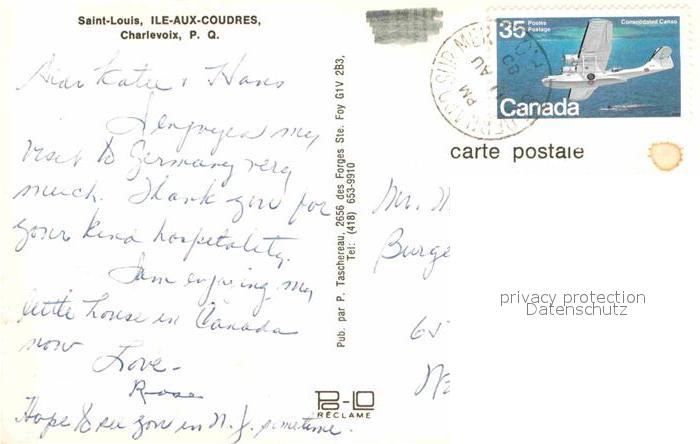 Saint-Louis, ILE-AUX-COUDRES,
Charlevoix, P. Q.
Dear Katie & Hans
I enjoyed my
visit to Germany very
much. Thank you for
your kind hospitality.
I am enjoying my
little house in Canada
now
Love-
Rose
Hope to see you in N.J. sometime.
Pub. par P. Taschereau, 2656 des Forges Ste. Foy G1V 2B3,
Tel: (418) 653-9910
PO-10
RÉCLAME
35 Postes
Postage
Consolidated Canso
Canada
SUR MER
AU
PM
carte postale
Mr.
Burge
65
privacy protection
Datenschutz